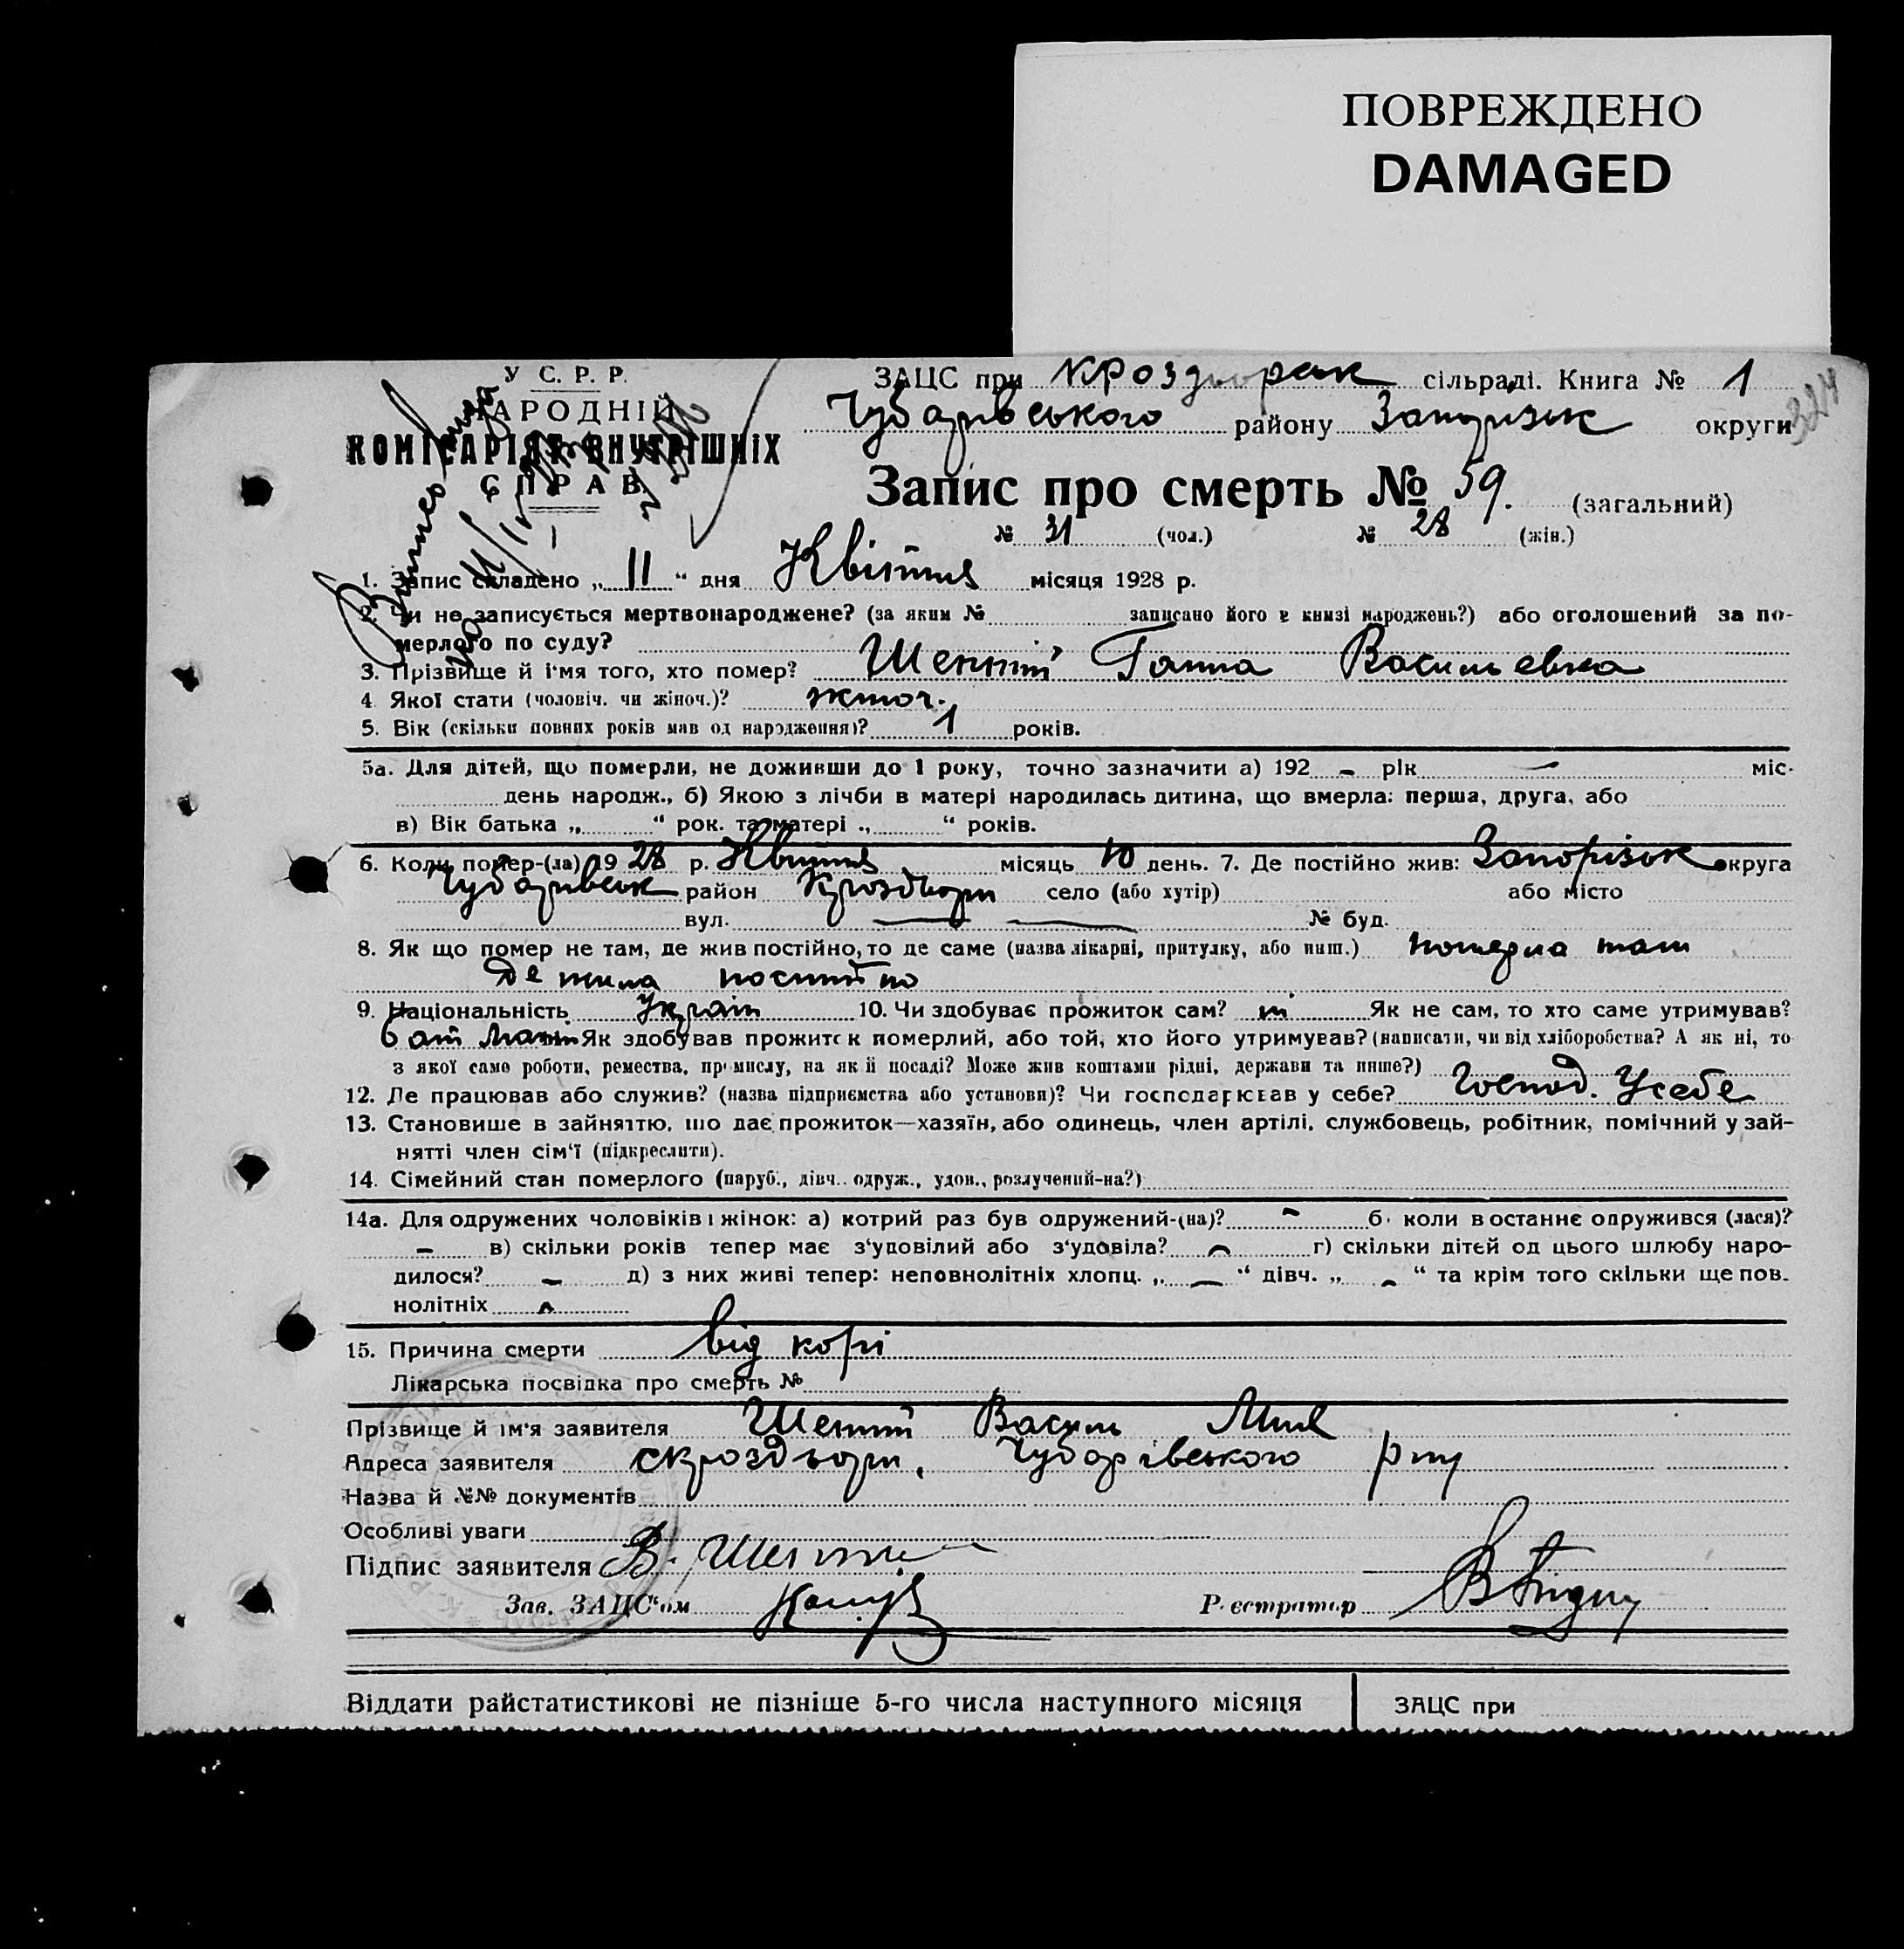 ПОВРЕЖДЕНО
DAMAGED
У С. Р. Р.
НАРОДНІЙ
КОМІСАРІЯТ ВНУТРІШНІХ
СПРАВ
ЗАЦС при сільраді. Книга № 1
Чубарівського району Запорізьк округи
Запис про смерть № 59. (загальний)
№ 31 (чол.) № 28 (жін.)
1. Запис складено „ 11 “ дня Квітня місяця 1928 р.
2. Чи не записується мертвонароджене? (за яким № записано його в книзі народжень?) або оголошений за по-
мерлого по суду?
3. Прізвище й і'мя того, хто помер? Ганна Васильевна
4. Якої стати (чоловіч. чи жіноч.)? жіноч.
5. Вік (скільки повних років мав од народження)? 1 років.
5а. Для дітей, що померли, не доживши до 1 року, точно зазначити а) 192 - рік - міс-
день народж., б) Якою з лічби в матері народилась дитина, що вмерла: перша, друга, або
в) Вік батька „ “ рок. та матері „ “ років.
6. Коли помер-(ла) 19 28 р. Квітня місяць 10 день. 7. Де постійно жив: Запорізьк округа
Чубарівськ район Кроздвори село (або хутір) або місто
вул. — — № буд.
8. Як що помер не там, де жив постійно, то де саме (назва лікарні, притулку, або инш.) померла там
де жила постійно
9. Національність Україн 10. Чи здобуває прожиток сам? ні Як не сам, то хто саме утримував?
бат Як здобував прожиток померлий, або той, хто його утримував? (написати, чи від хліборобства? А як ні, то
з якої само роботи, ремества, промислу, на якій посаді? Може жив коштами рідні, держави та инше?)
12. Де працював або служив? (назва підприємства або установи)? Чи господарював у себе? Господ. Усебе
13. Становище в зайняттю, що дає прожиток—хазяїн, або одинець, член артілі, службовець, робітник, помічний у зай-
нятті член сім'ї (підкреслити).
14. Сімейний стан померлого (паруб., дівч. одруж., удов., розлучений-на?)
14а. Для одружених чоловіків і жінок: а) котрий раз був одружений-(на)? - б) коли в останнє одружився (лася)?
- в) скільки років тепер має з'удовілий або з'удовіла? - г) скільки дітей од цього шлюбу наро-
дилося? - д) з них живі тепер: неповнолітніх хлопц. „ - “ дівч. „ - “ та крім того скільки ще пов-
нолітніх -
15. Причина смерти від корі
Лікарська посвідка про смерть №
Прізвище й ім'я заявителя Василь
Адреса заявителя Чубарівського рну
Назва й №№ документів
Особливі уваги
Підпис заявителя В.
Зав. ЗАЦС'ом
Реєстратор
Віддати райстатистикові не пізніше 5-го числа наступного місяця ЗАЦС при